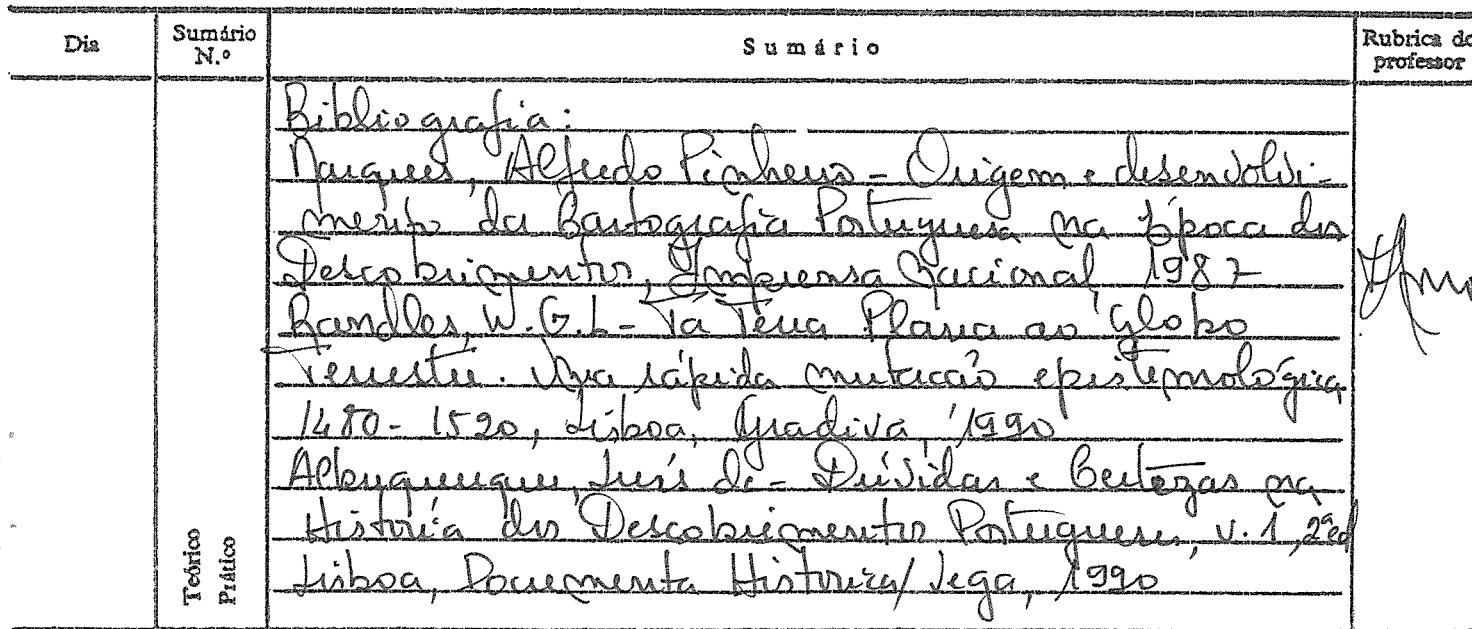 Dia
Sumário
N.º
Sumário
Rubrica do
professor
Bibliografia:
Marques, Alfredo Pinheiro - Origem e desenvolvi-
mento da Cartografia Portuguesa na Época dos
Descobrimentos, Imprensa Nacional 1987
Randles, W.G.L - Da Terra Plana ao Globo
Terrestre. Uma rápida mutação epistemológica
1480-1520, Lisboa, Gradiva, 1990
Albuquerque, Luís de - Dúvidas e Certezas na
História dos Descobrimentos Portugueses, v. 1, 2ª ed
Lisboa, Documenta Historica/Vega, 1990
Teórico
Prático